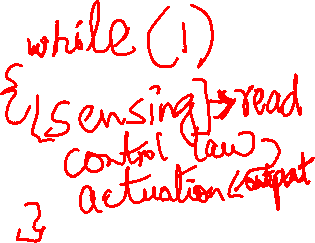 while (1)
{
[sensing] → read
control law
actuation output
}